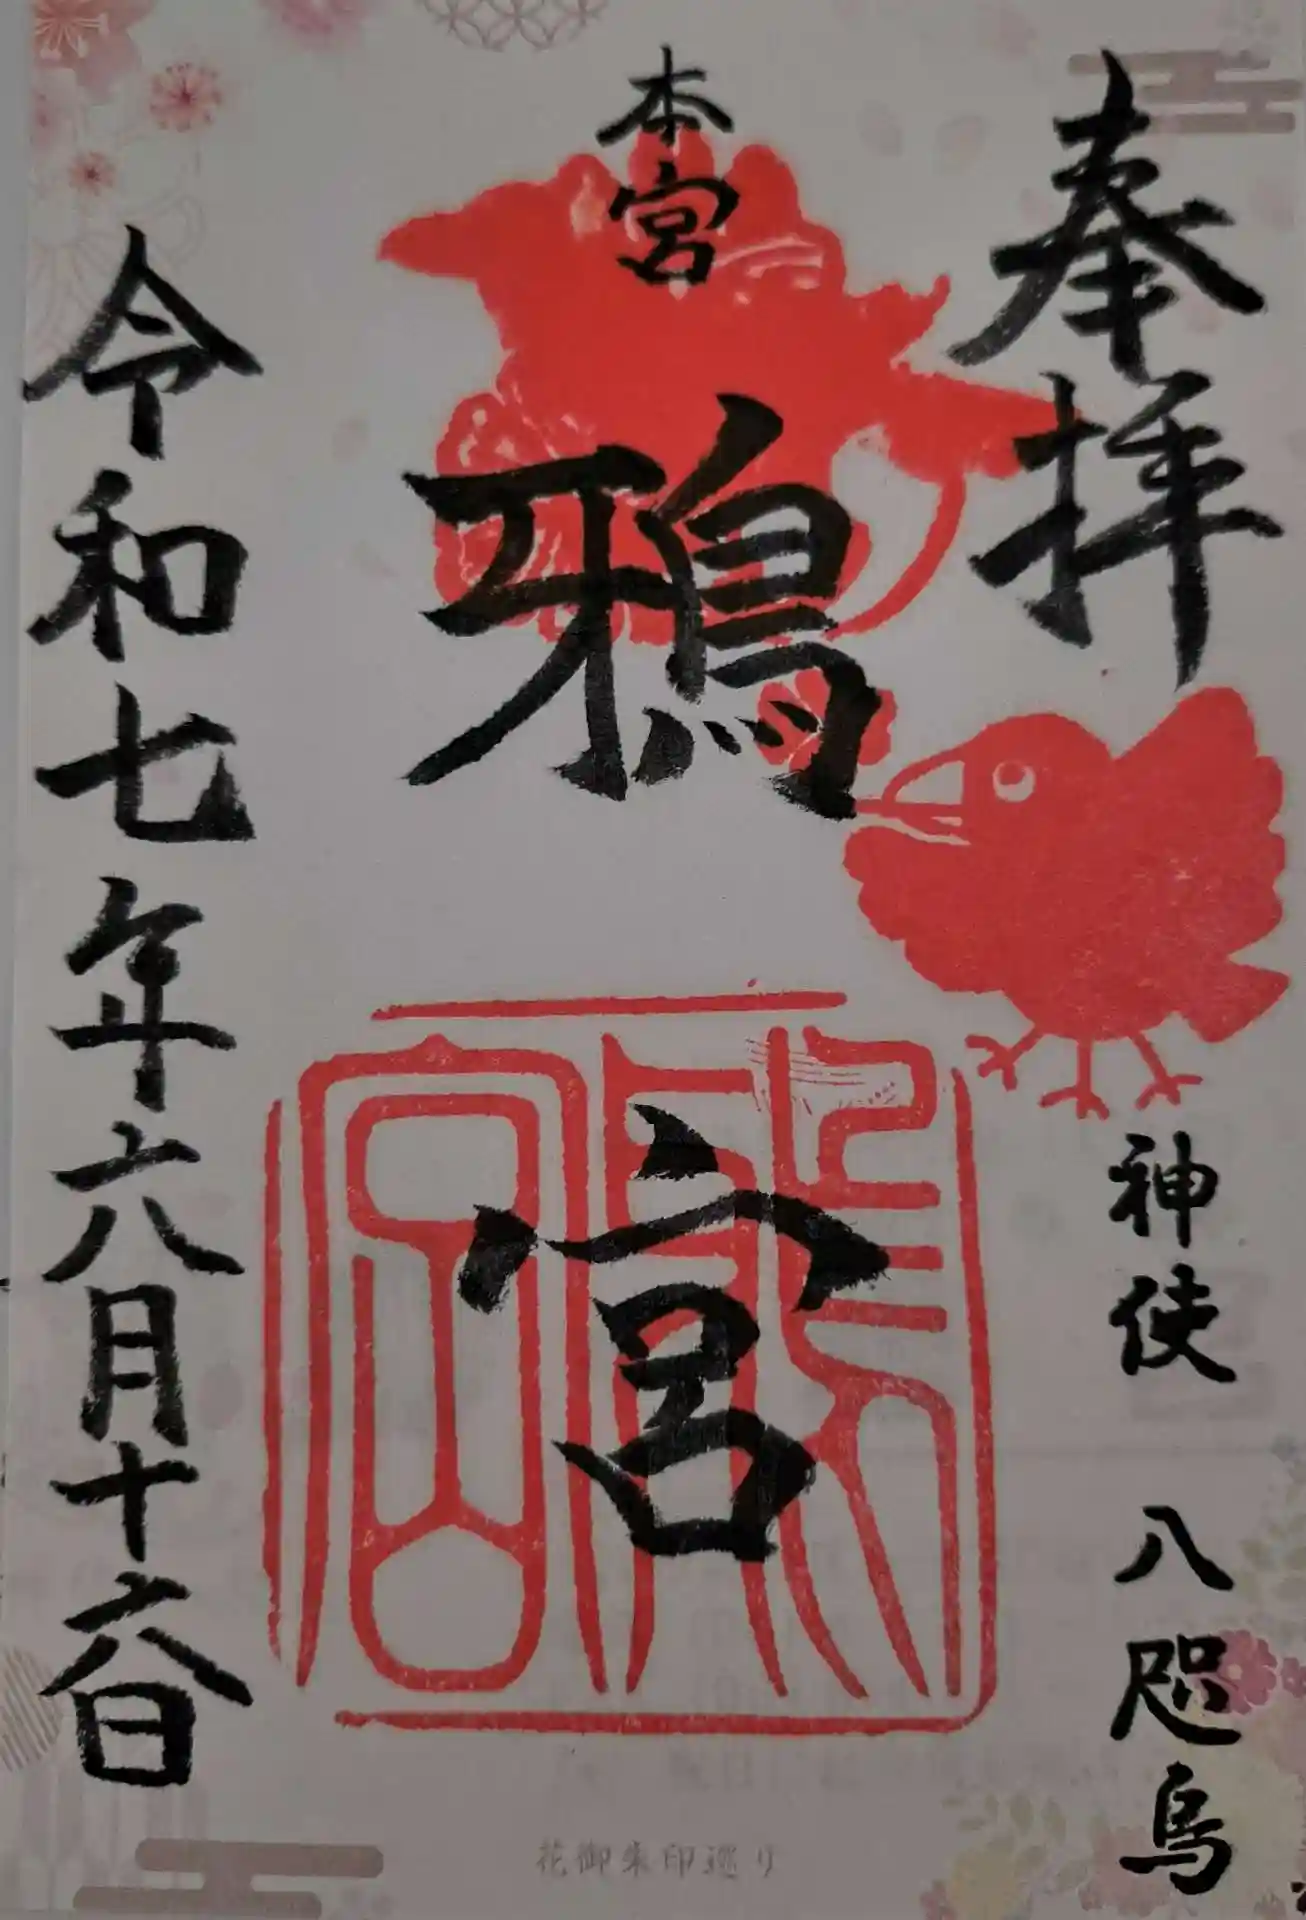 奉拝
神使 八咫烏
本宮
鴉宮
令和七年六月十六日
花御朱印巡り